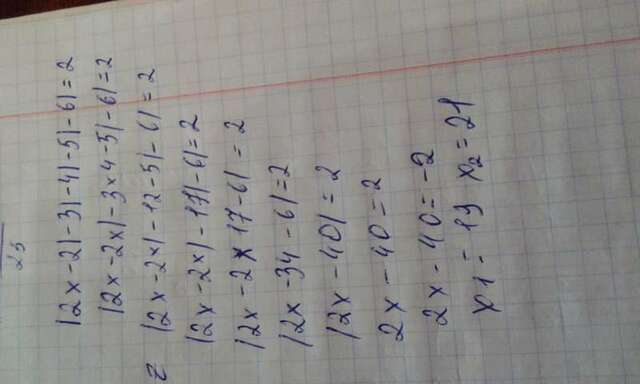 23
|2x-2|-3|-4|-5|-6|=2
|2x-2x|-3x4-5|-6|=2
z |2x-2x|-12-5|-6|=2
|2x-2x|-17|-6|=2
|2x-2x17-6|=2
|2x-34-6|=2
|2x-40|=2
2x-40=2
2x-40=-2
x1=19 x2=21